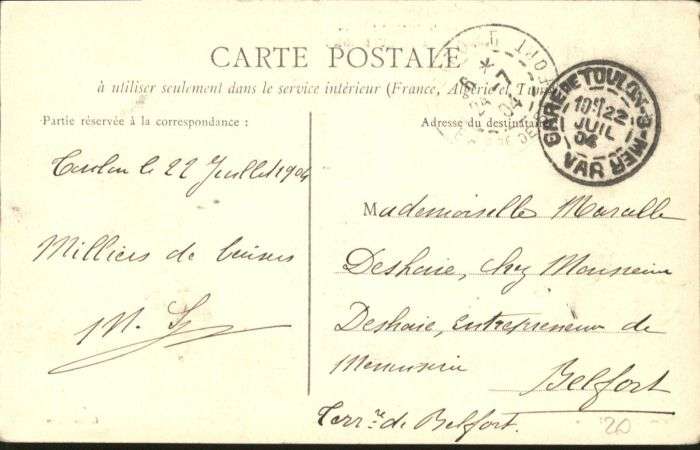 CARTE POSTALE
à utiliser seulement dans le service intérieur (France, Algérie et Tunisie
Partie réservée à la correspondance :
Adresse du destinataire
GARE DE TOULON-S-MER
10 22
JUIL
04
VAR
Toulon le 22 Juillet 1904
Milliers de baisers
M.
Mademoiselle Marcelle
Deshaie, chez Monsieur
Deshaie, Entrepreneur de
Menuiserie
Belfort
Terr.re de Belfort.
20